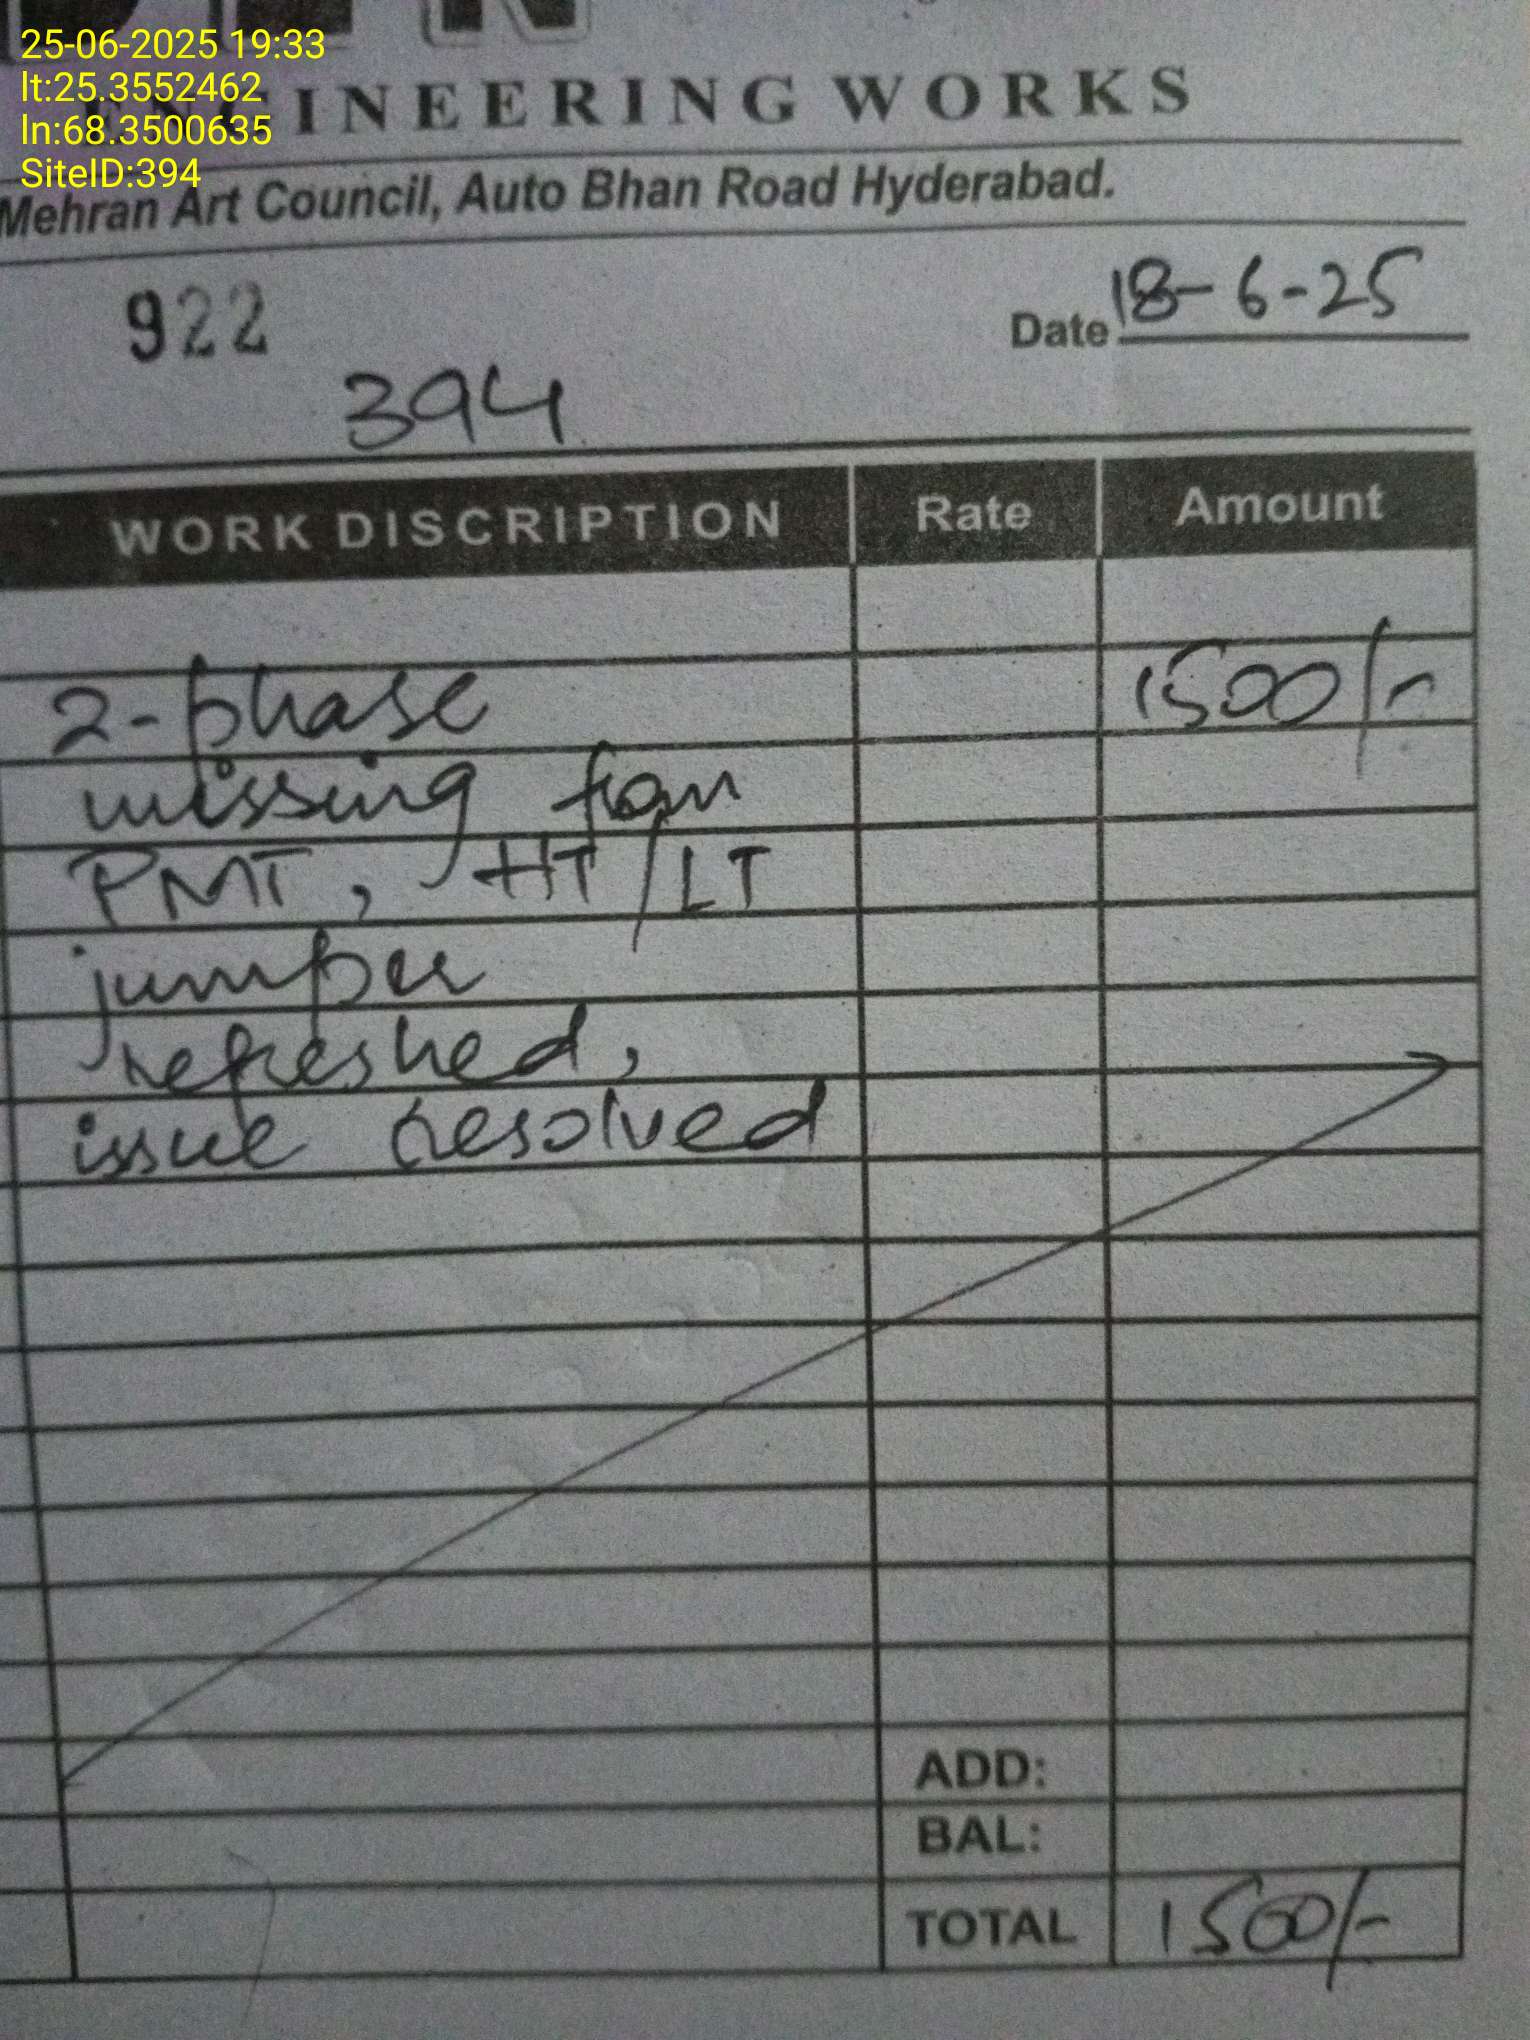 25-06-2025 19:33
lt:25.3552462
ln:68.3500635
SiteID:394
ENGINEERING WORKS
Mehran Art Council, Auto Bhan Road Hyderabad.
922
Date 18-6-25
394
WORK DISCRIPTION Rate Amount
2-phase 1500/-
missing from
PMT, HT/LT
jumper
refreshed,
issue resolved
ADD:
BAL:
TOTAL 1500/-